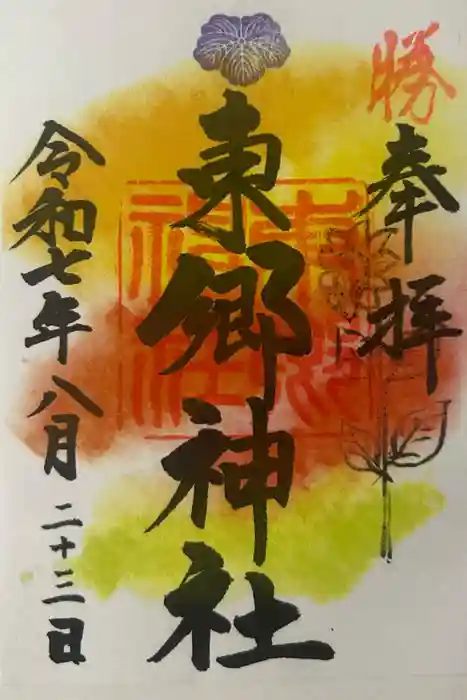 勝
奉拝
東郷神社
東郷神社
令和七年八月二十三日